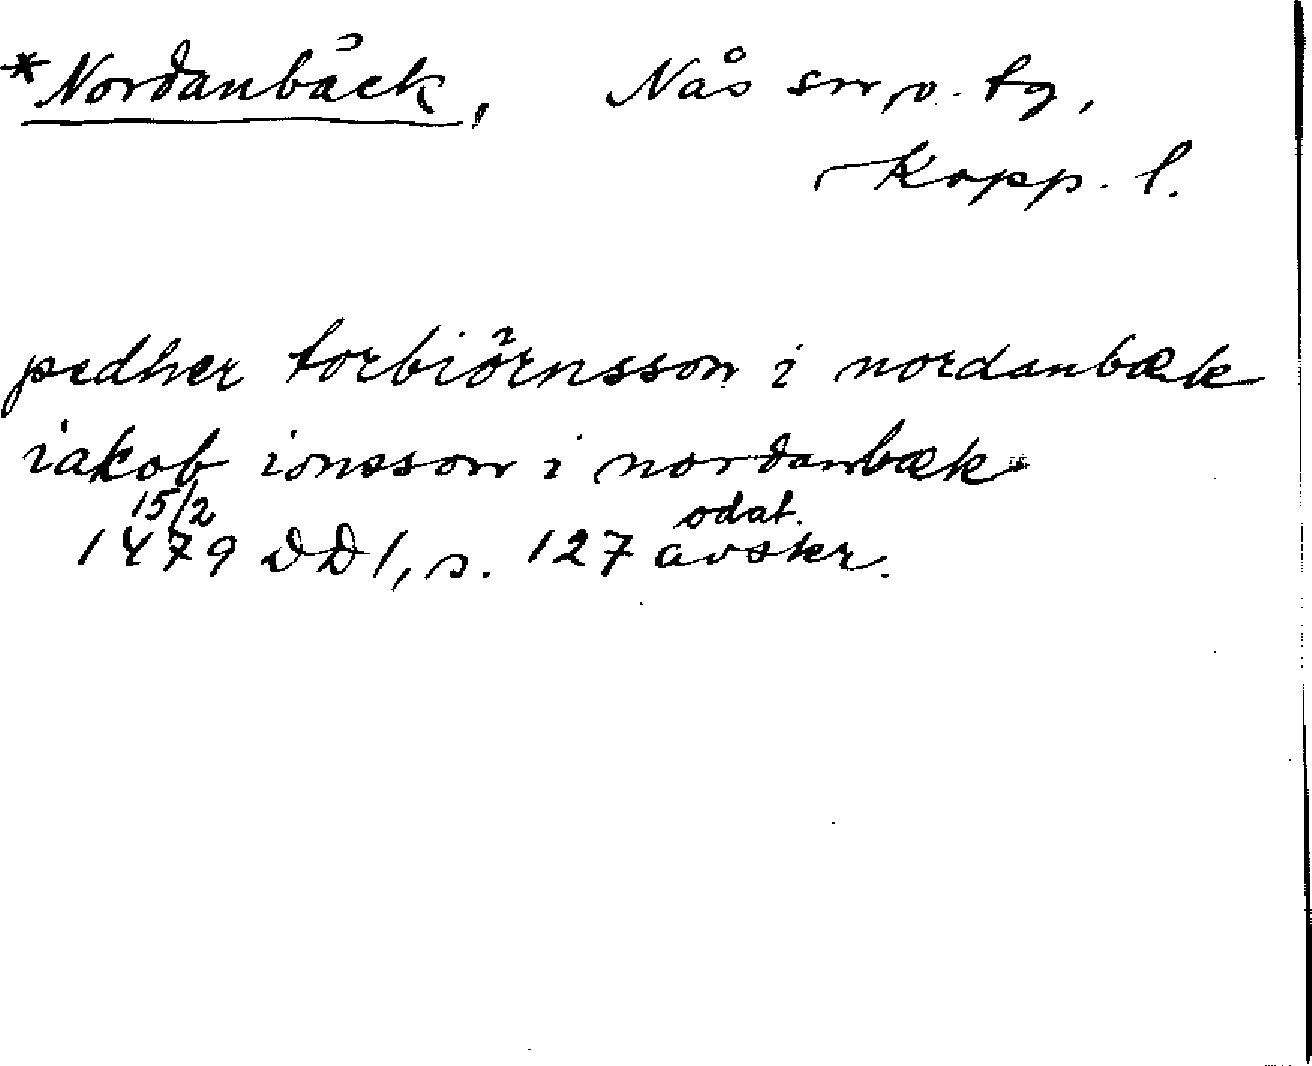 *Nordanbäck, Nås sn, o. tg,
Kopp. l.
pedher torbiörnsson i nordanbæk
iakob ionsson i nordanbæk
15/2 odat.
1479 DD 1, s. 127 avskr.